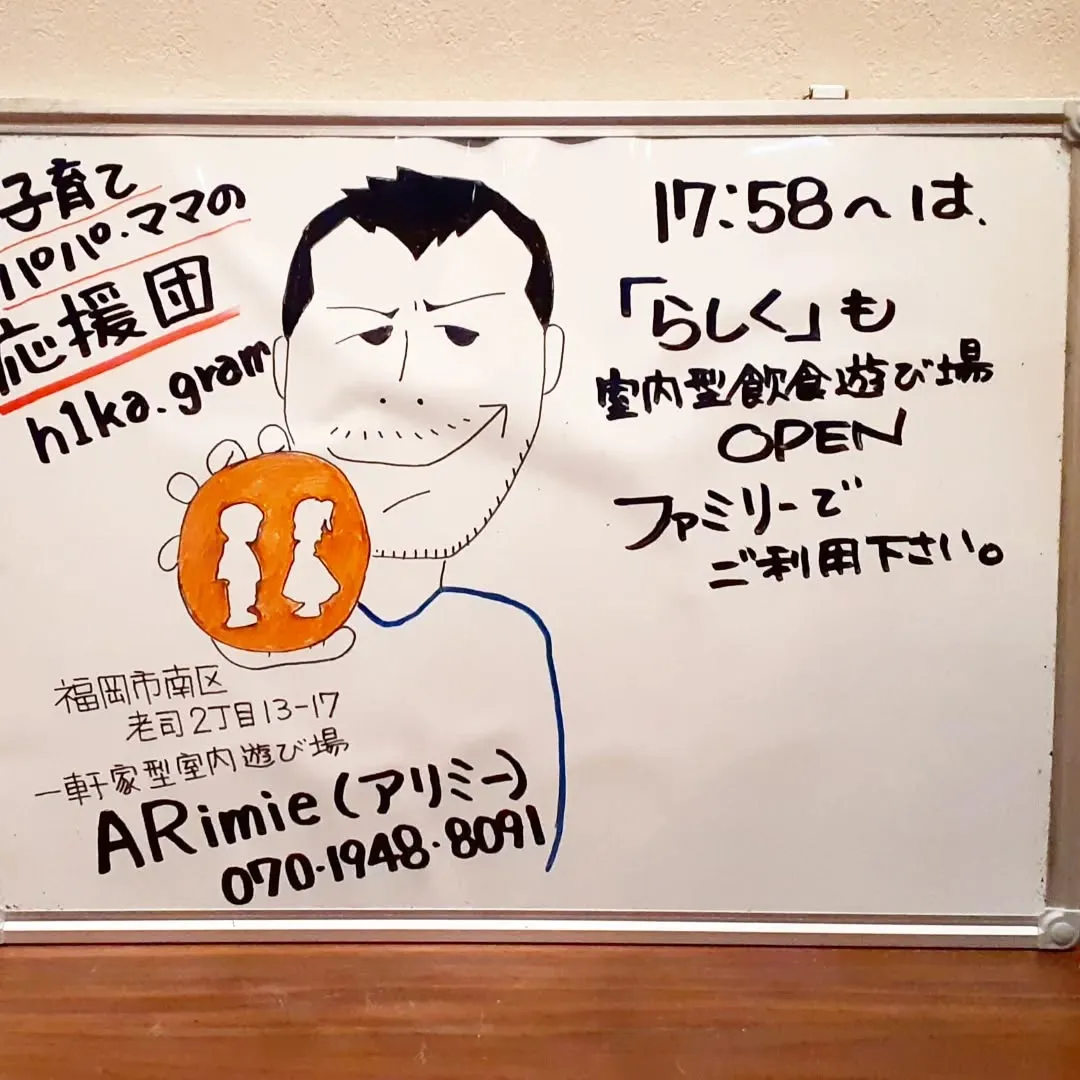 子育て
パパ・ママの
応援団
h1ka.gram
17:58〜は、
「らしく」も
室内型飲食遊び場
OPEN
ファミリーで
ご利用下さい。
福岡市南区
老司2丁目13-17
一軒家型室内遊び場
ARimie(アリミー)
070-1948-8091